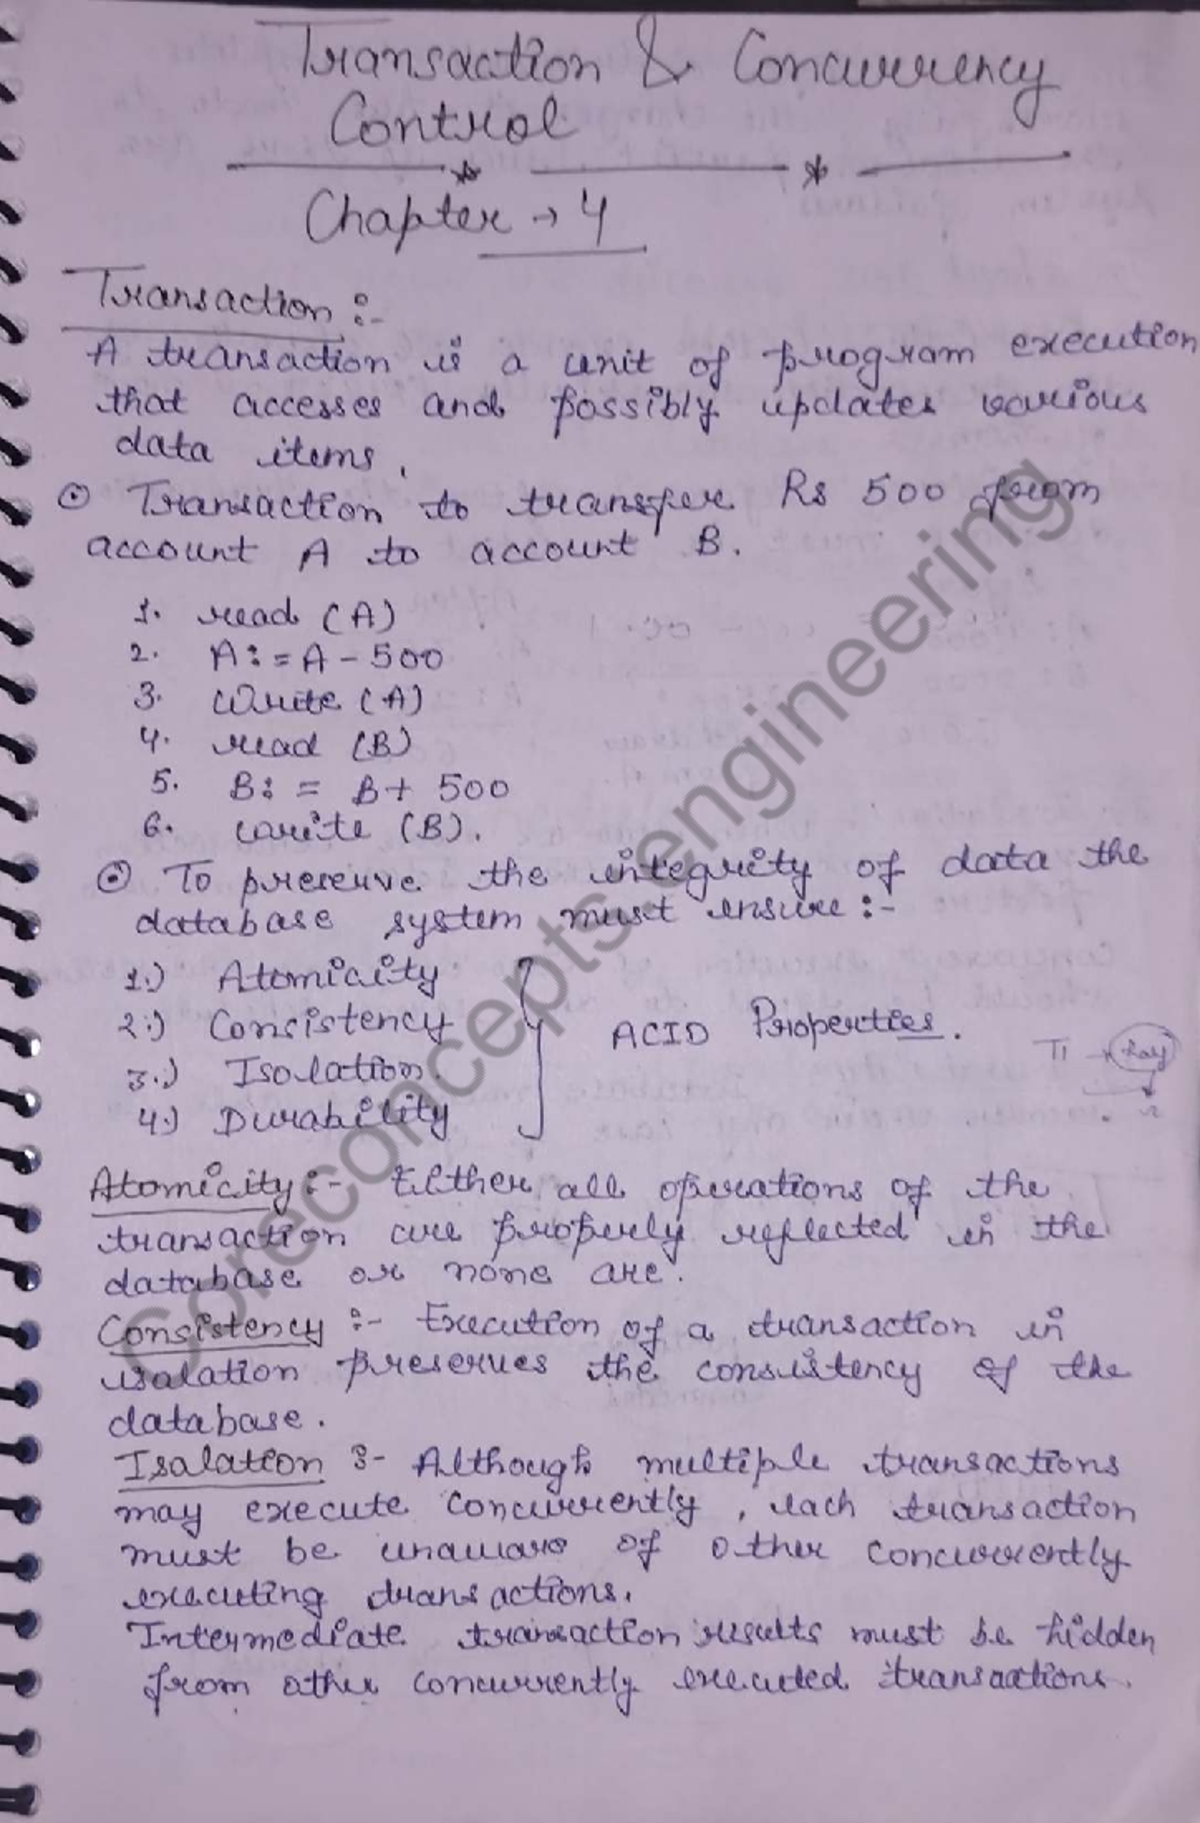 Transaction & Concurrency
Control
Chapter → 4
Transaction :-
A transaction is a unit of program execution
that accesses and possibly updates various
data items.
⊙ Transaction to transfer Rs 500 from
account A to account B.
1. read (A)
2. A := A - 500
3. Write (A)
4. read (B)
5. B := B + 500
6. write (B).
⊙ To preserve the integrity of data the
database system must ensure :-
1.) Atomicity
2.) Consistency
3.) Isolation.
4.) Durability
ACID Properties.
T1
Atomicity :- Either all operations of the
transaction are properly reflected in the
database or none are.
Consistency :- Execution of a transaction in
isalation preserves the consistency of the
database.
Isalation :- Although multiple transactions
may execute concurrently, each transaction
must be unaware of other concurrently
executing transactions.
Intermediate transaction results must be hidden
from other concurrently executed transactions.
Coreconcepts.engineering